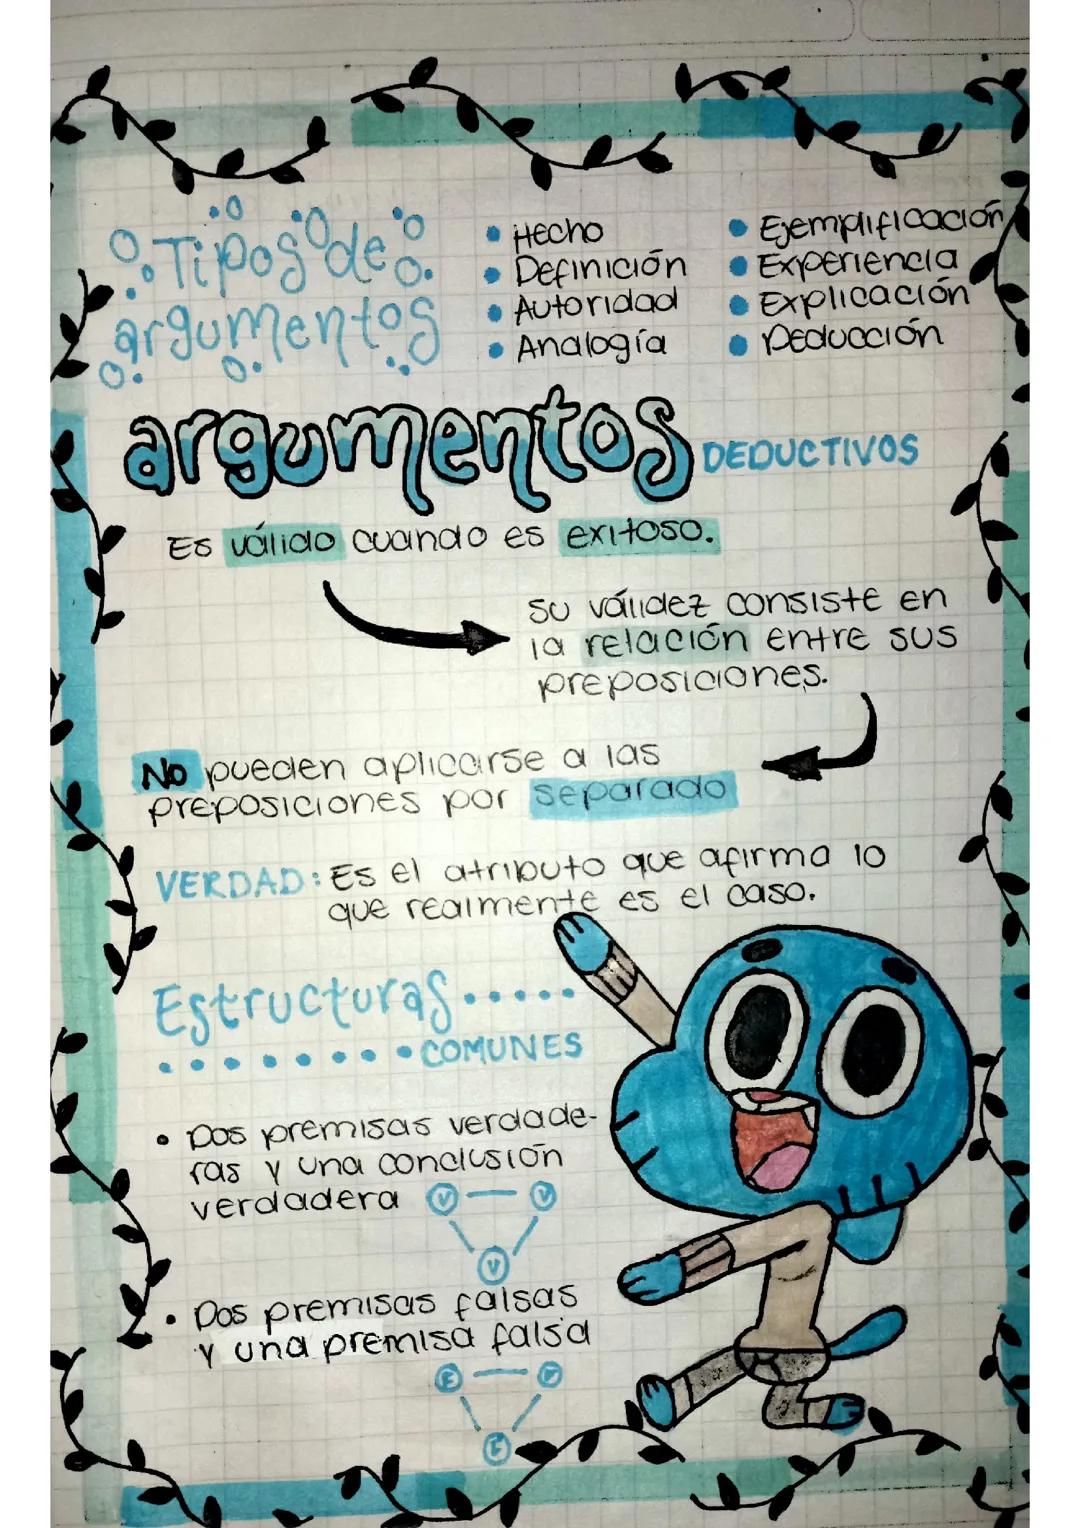 Tipos de
argumentos
• Hecho
• Definición
• Autoridad
• Analogía
• Ejemplificación
• Experiencia
• Explicación
• Deducción
argumentos DEDUCTIVOS
Es válido cuando es exitoso.
Su válidez consiste en
la relación entre sus
preposiciones.
No pueden aplicarse a las
preposiciones por separado
VERDAD: Es el atributo que afirma lo
que realmente es el caso.
Estructuras
COMUNES
• Dos premisas verdade-
ras y una conclusión
verdadera V V
V
• Dos premisas falsas
y una premisa falsa
F F
F